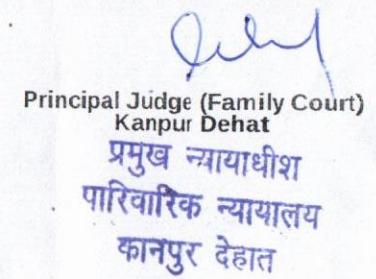 Principal Judge (Family Court)
Kanpur Dehat
प्रमुख न्यायाधीश
पारिवारिक न्यायालय
कानपुर देहात